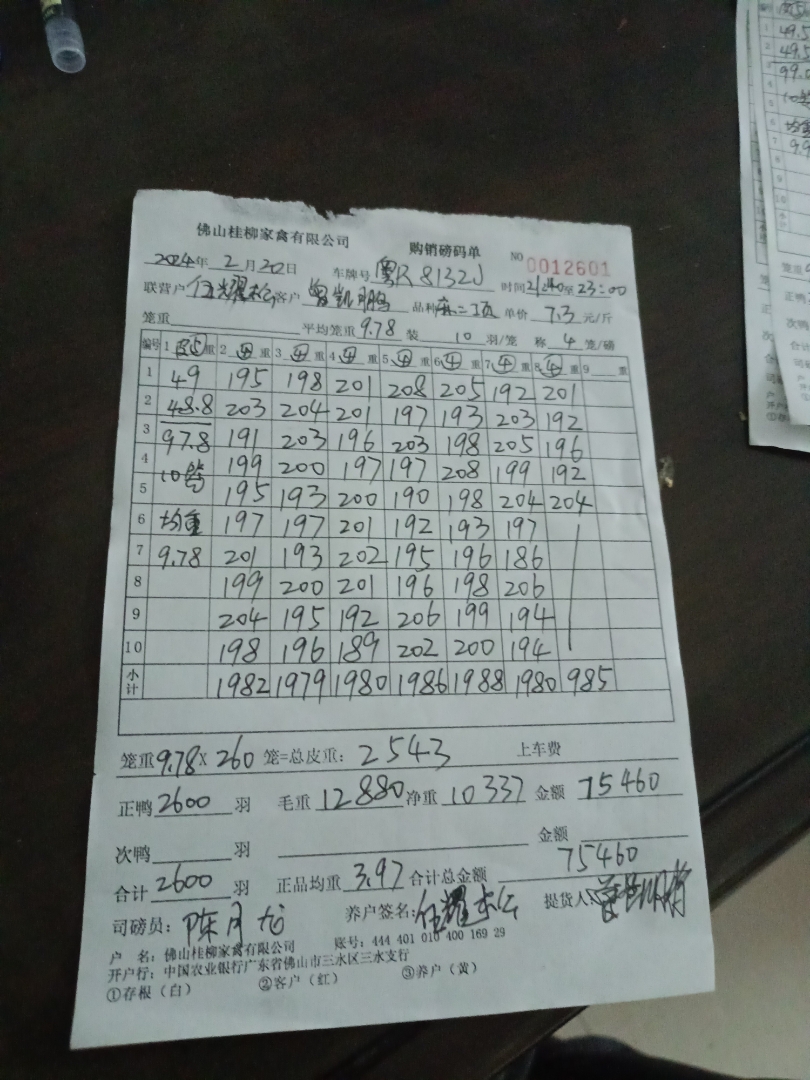 佛山桂柳家禽有限公司 购销磅码单 NO 0012601
2024年 2月20日 车牌号 粤R8132J 时间21:40至23:00
联营户 伍耀松 客户 曾凯鹏 品种 单价 7.3 元/斤
笼重 平均笼重9.78 装 10 羽/笼 称 4 笼/磅
编号 1 重 2 四 重 3 四 重 4 四 重 5 四 重 6 四 重 7 四 重 8 四 重 9 重
1 49 195 198 201 208 205 192 201
2 48.8 203 204 201 197 193 203 192
3 97.8 191 203 196 203 198 205 196
4 10笼 199 200 197 197 208 199 192
5 195 193 200 190 198 204 204
6 均重 197 197 201 192 193 197
7 9.78 201 193 202 195 196 186
8 199 200 201 196 198 206
9 204 195 192 206 199 194
10 198 196 189 202 200 194
小计 1982 1979 1980 1986 1988 1980 985
笼重9.78X 260 笼=总皮重: 2543 上车费
正鸭2600 羽 毛重 12880 净重 10337 金额 75460
次鸭 羽 金额
合计 2600 羽 正品均重 3.97 合计总金额 75460
司磅员: 陈月龙 养户签名: 伍耀松 提货人: 曾凯鹏
户 名: 佛山桂柳家禽有限公司 账号: 444 401 010 400 169 29
开户行: 中国农业银行广东省佛山市三水区三水支行
①存根(白) ②客户(红) ③养户(黄)
49.5
49.5
99.0
均重